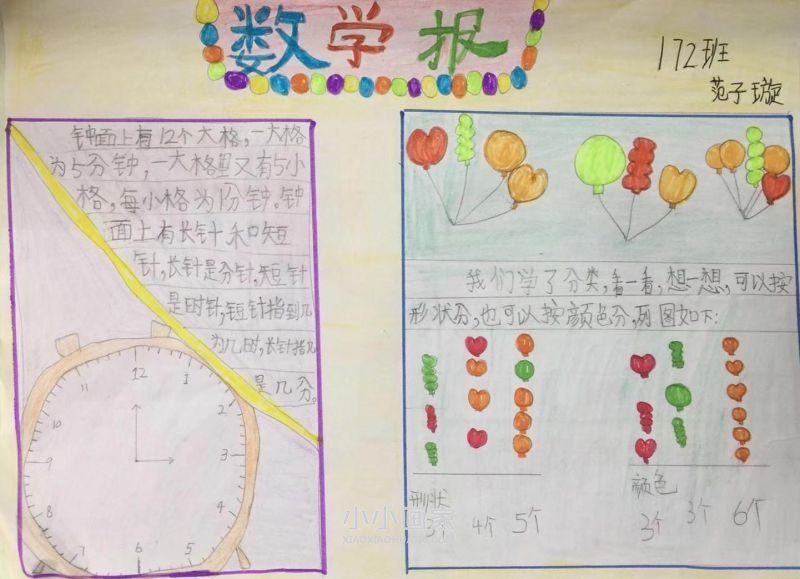 数学报
172班
范子璇
钟面上有12个大格,一大格
为5分钟,一大格里又有5小
格,每小格为1分钟。钟
面上有长针和短
针,长针是分针,短针
是时针,短针指到几
为几时,长针指几
是几分。
12
1
2
3
4
5
6
7
8
9
10
11
我们学了分类,看一看,想一想,可以按
形状分,也可以按颜色分,列图如下:
形状
3个 4个 5个
颜色
3个 3个 6个
小小画家